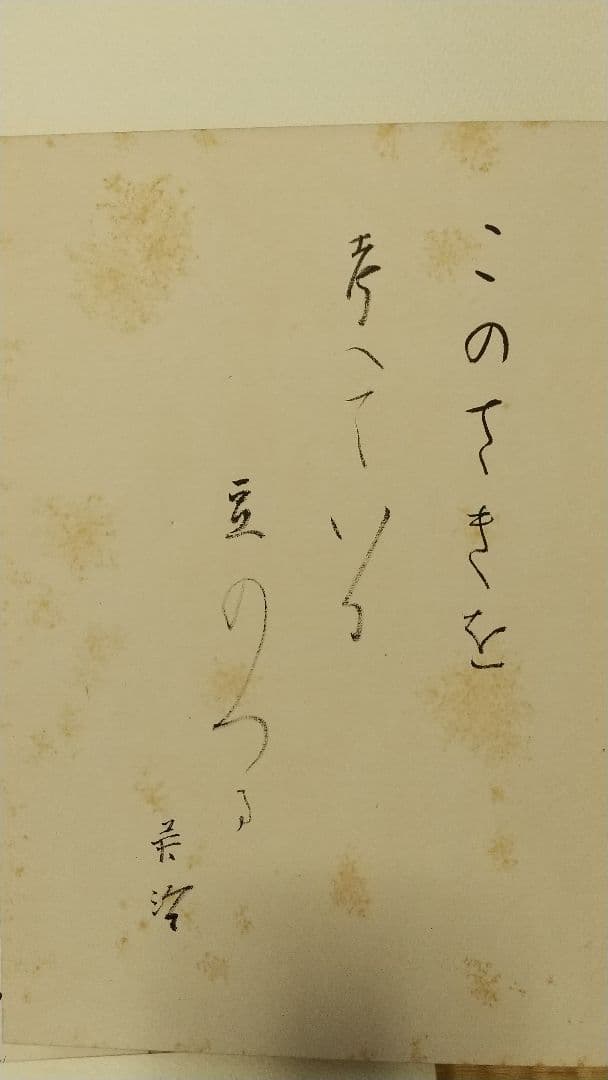 このさきを
考へている
豆のつる
英治